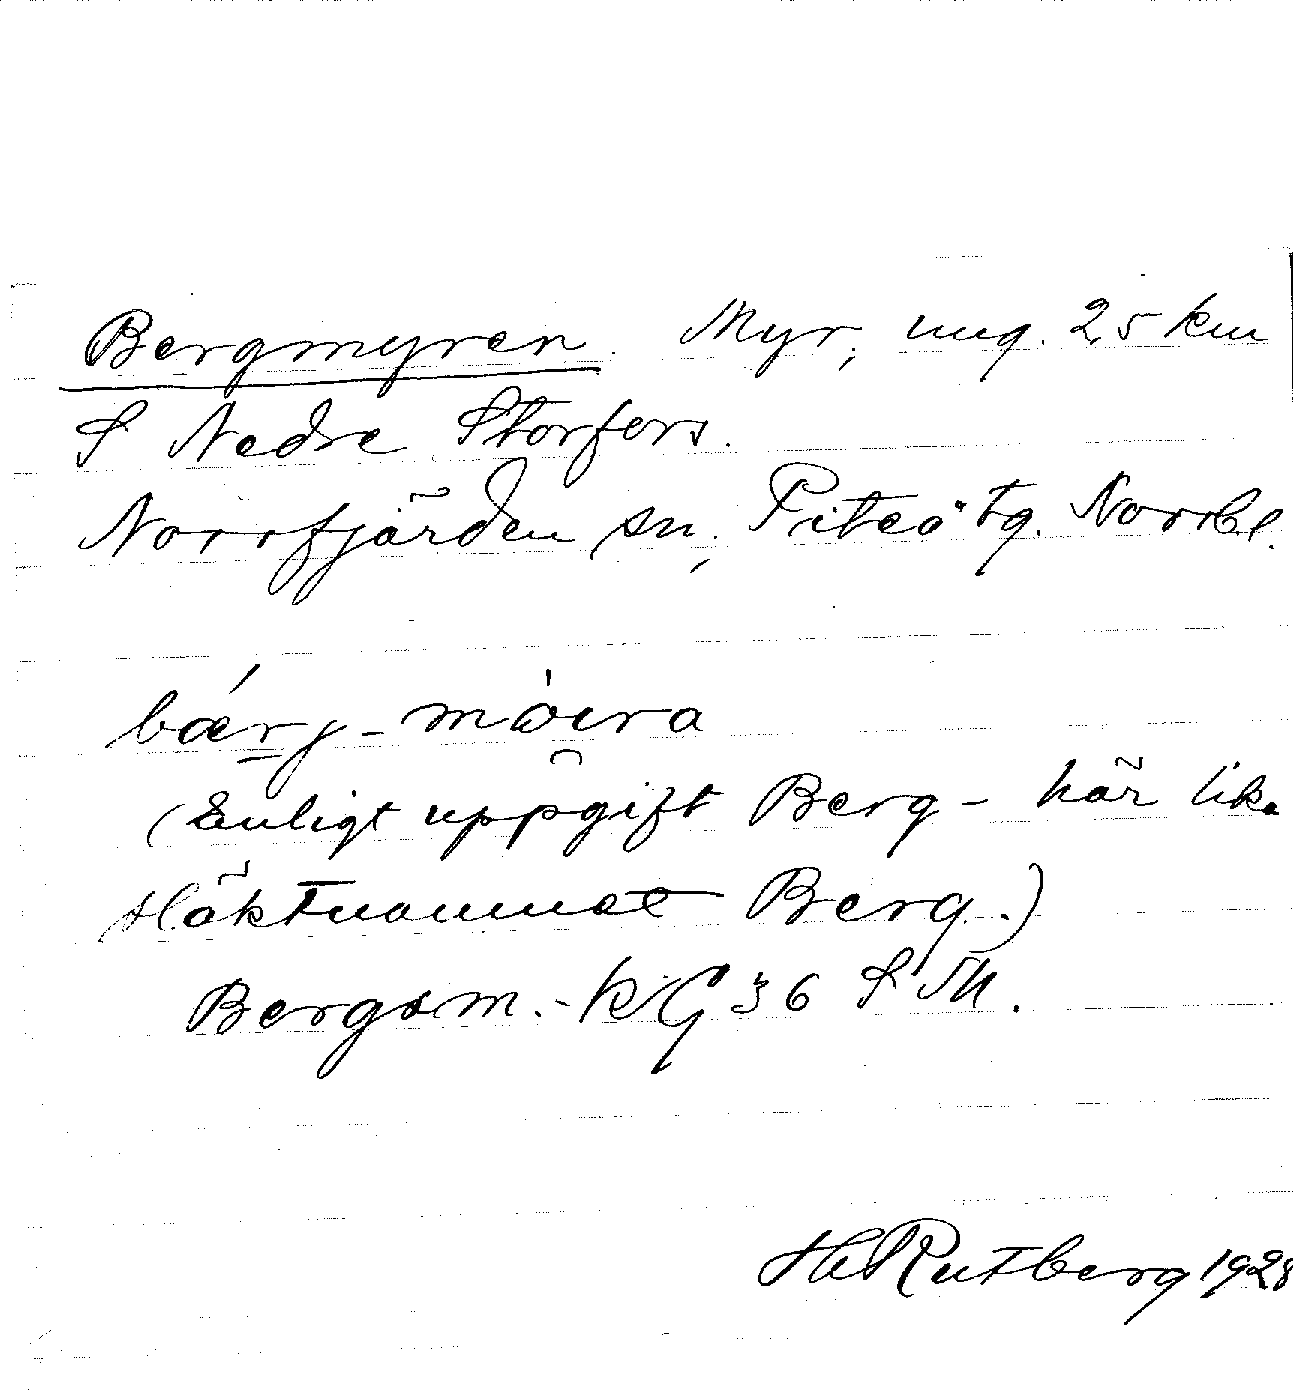 Bergmyren. Myr, ung. 2,5 km
S Nedre Storfors.
Norrfjärden sn, Piteå tg. Norrb l.
bærj-möira
(Enligt uppgift Berg- här lika
släktnamnet Berg.)
Bergsm.- KG 36 S M.
H Rutberg 1928